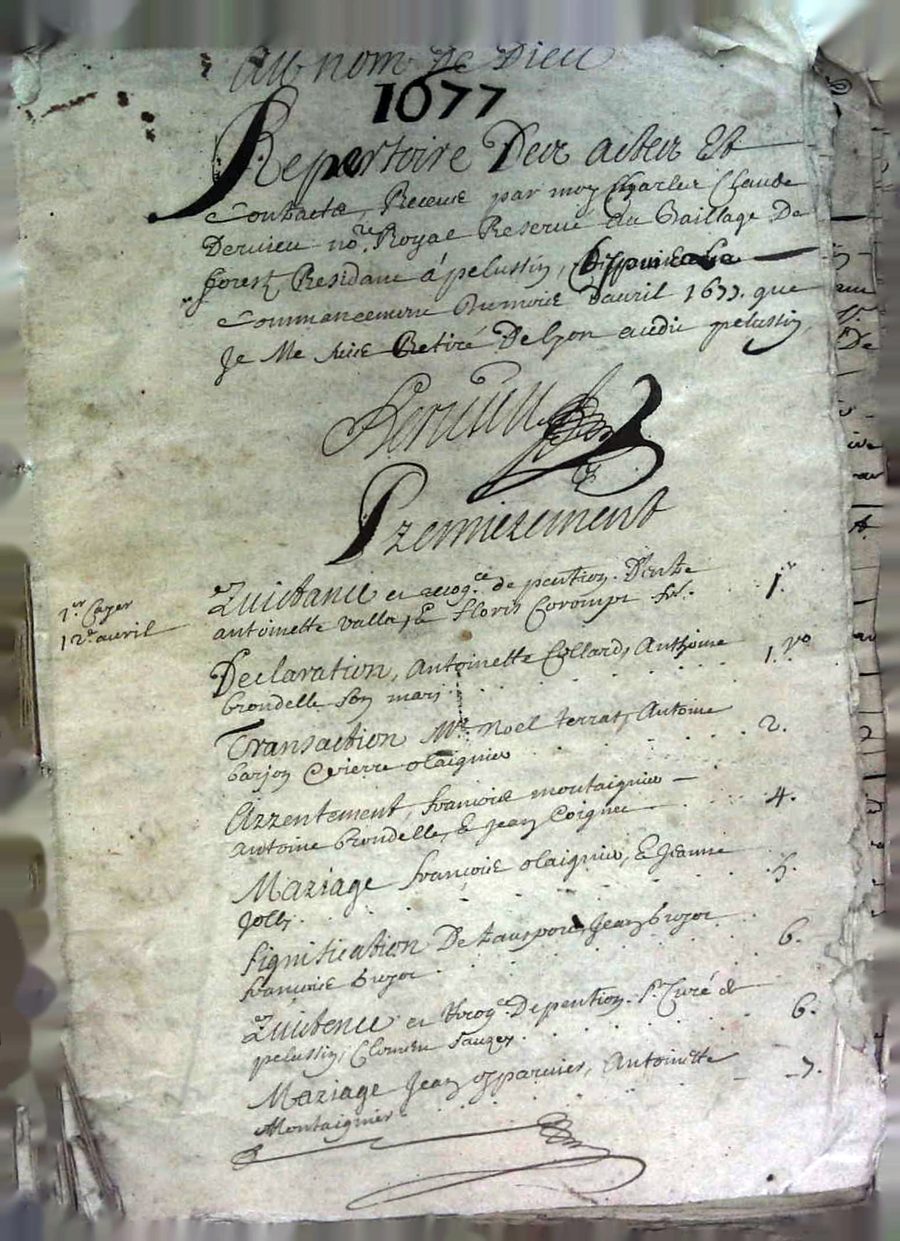 Au nom De Dieu
1677
Repertoire Des actes Et
Contracts, Receus par moy Charles Claude
Dervieu no.re Royal Reservé du Baillage De
forest Residant á pelussin, Depuis le
Commancement Du mois D'avril 1677. que
Je Me suis Retiré De lyon audit pelussin
Dervieu
Premierement
1.er Cayer
12.e avril
Quictance et recog.ce de pention. D'ente 1.r
antoinette valla, & floris Corompt
Declaration, Antoinette Collard, Anthoine 1. vo
brondelle son mary
Transaction M.re Noel terrat, Antoine 2.
barjon & pierre olaignier
Arrentement, francois montaignier 4.
antoine brondelle, & Jean Coignet
Mariage francois olaignier, & Jeanne 5.
Jolly.
Signification De transport, Jean 6.
francois
Quictence et Recog.ce De pention. S.r Curé de 6.
pelussin, Clement
Mariage Jean parvier, Antoinette 7.
Montaignier